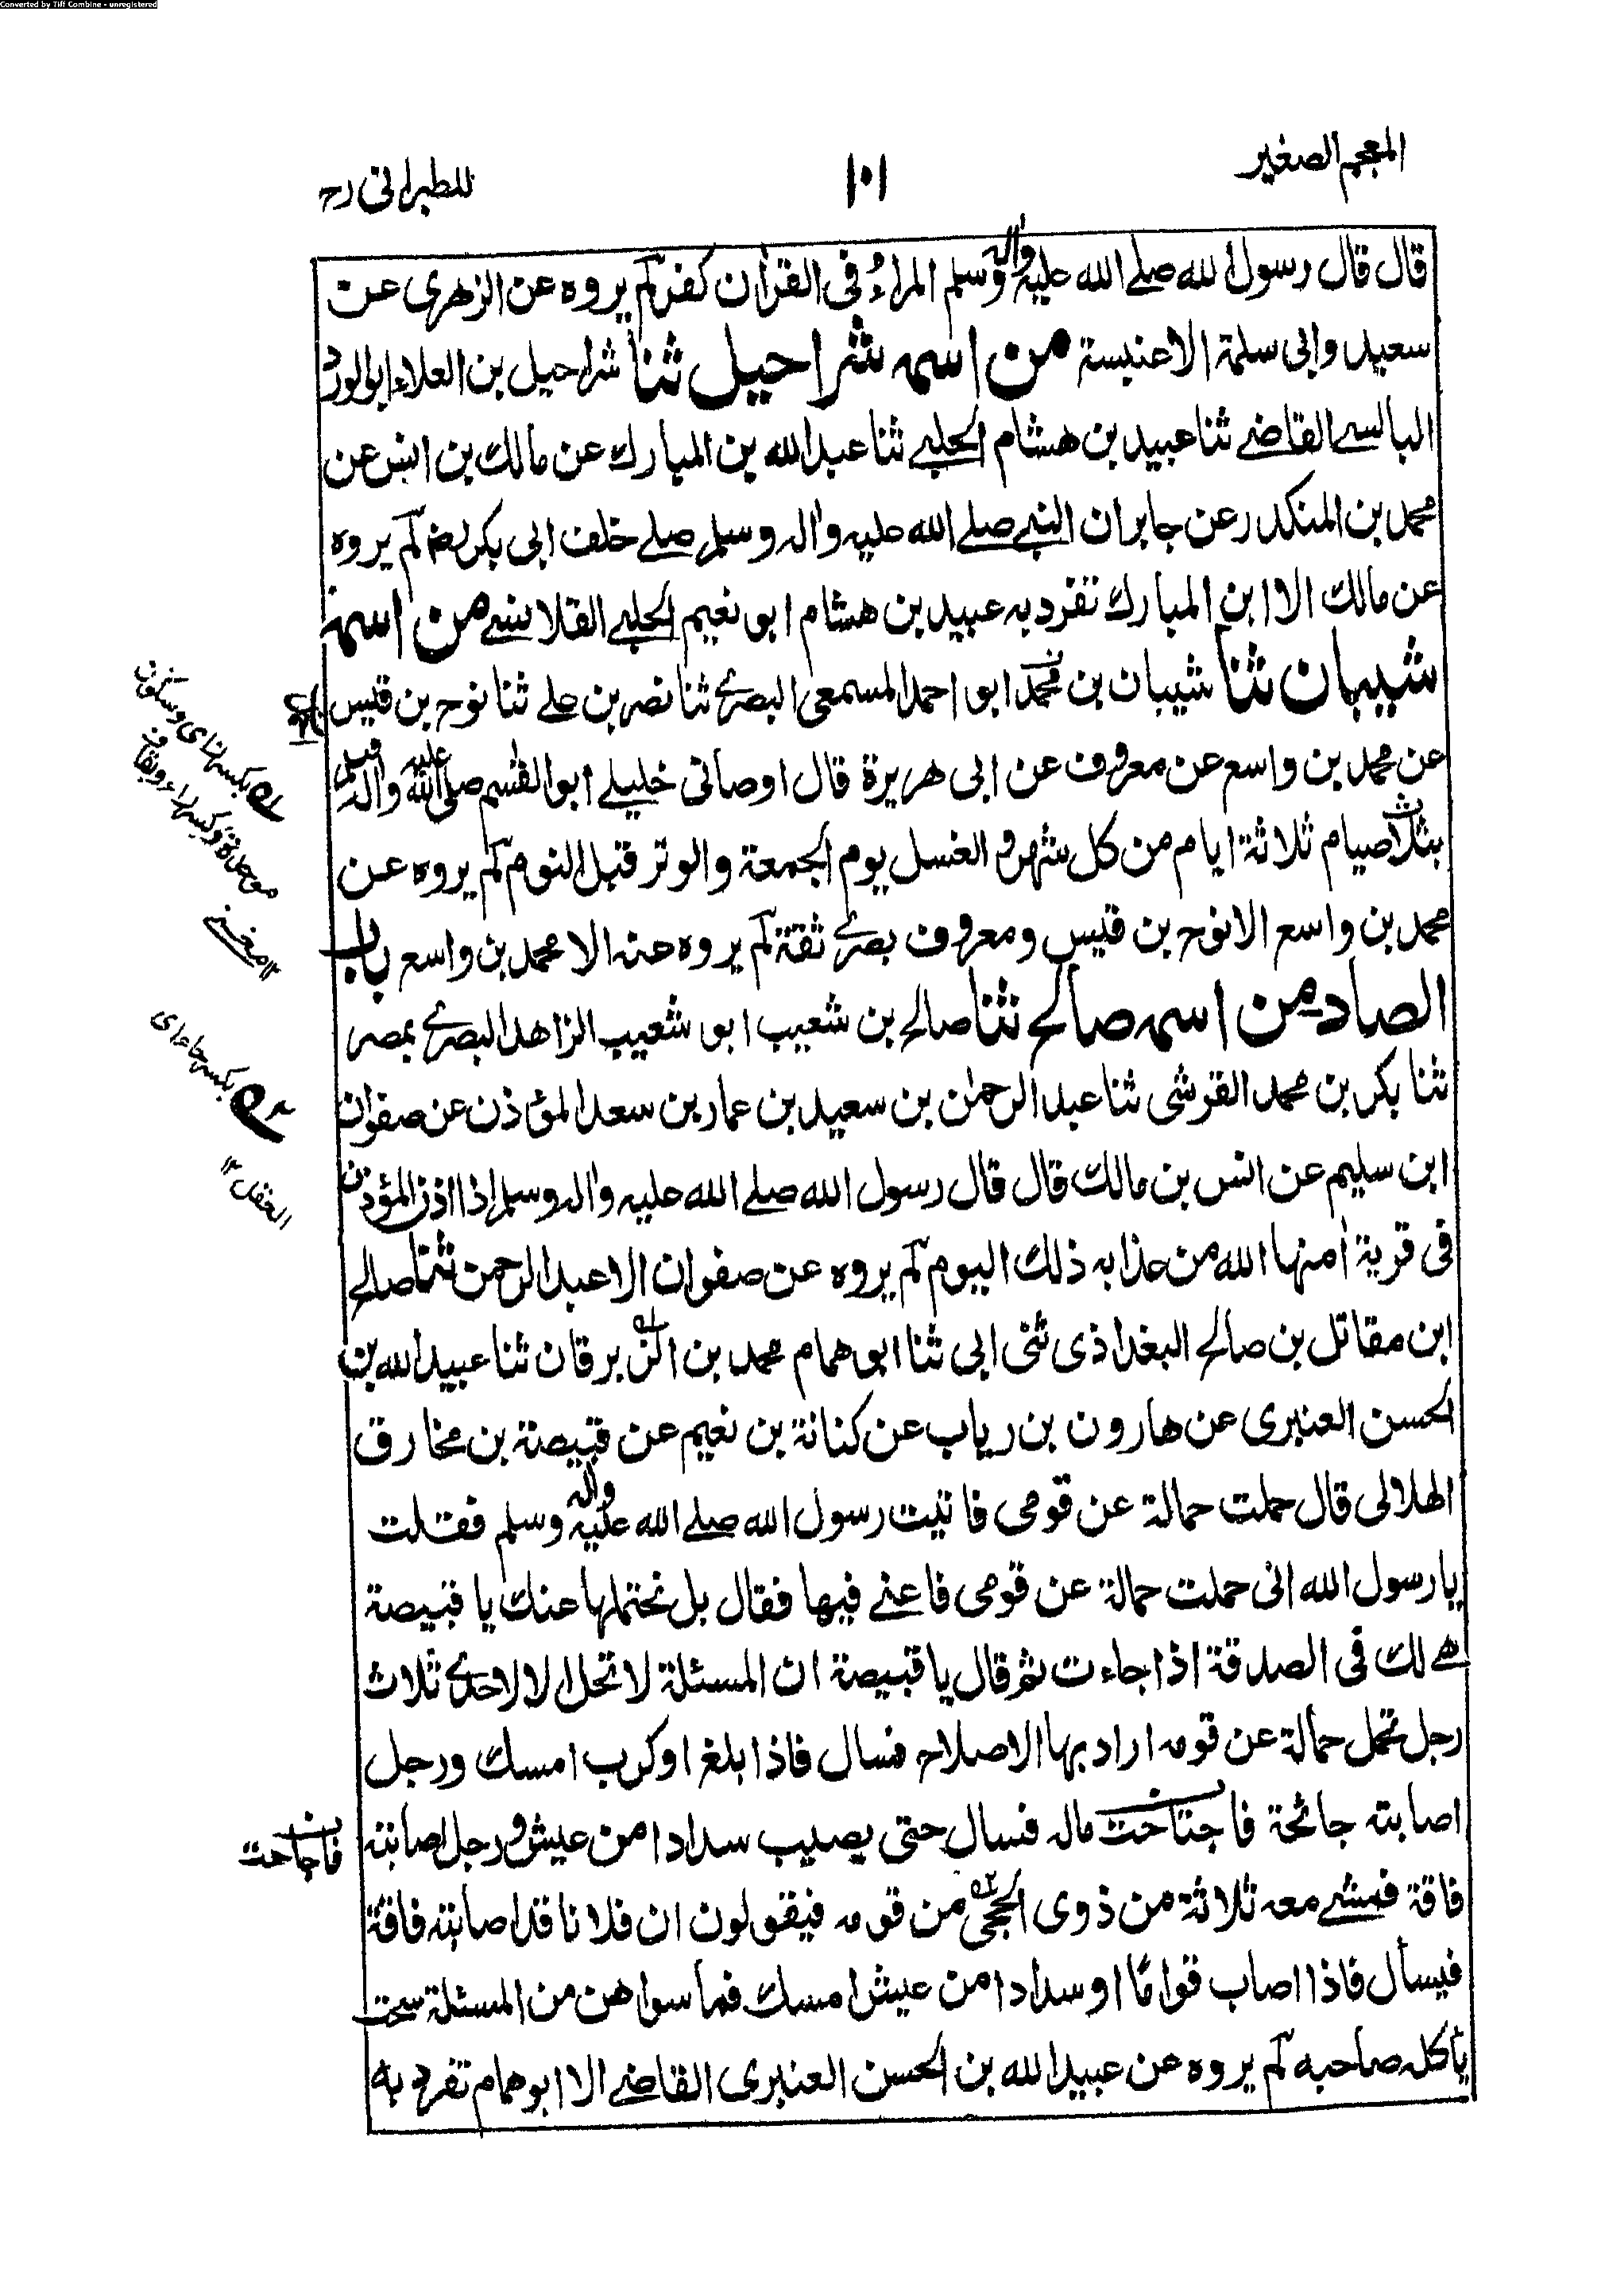 Converted by Tiff Combine - unregistered
المعجم الصغير
١٠١
للطبرانی رح
قال قال رسول الله صلے الله علیه واله وسلم المراءُ فی القران کفر لم یروه عن الزهری عن
سعید وابی سلمة الا عنبسة من اسمه شراحیل ثنا شراحیل بن العلاء ابو الورد
البالسے القاضے ثنا عبید بن هشام الحلبے ثنا عبد الله بن المبارك عن مالك بن انس عن
محمد بن المنکدر عن جابر ان النبے صلے الله علیه واله وسلم صلے خلف ابی بکر رضہ لم یروه
عن مالك الا ابن المبارك تفرد به عبید بن هشام ابو نعیم الحلبے القلانسے من اسمه
شیبان ثنا شیبان بن محمد ابو احمد المسمعی البصرے ثنا نصر بن علے ثنا نوح بن قیس
عن محمد بن واسع عن معروف عن ابی هریرة قال اوصانی خلیلے ابو القٰسم صلی الله علیه واله وسلم
بثلاث صیام ثلاثة ایام من کل شهر و الغسل یوم الجمعة والوتر قبل النوم لم یروه عن
محمد بن واسع الا نوح بن قیس ومعروف بصرے ثقة لم یروه عنه الا محمد بن واسع باب
الصاد من اسمه صالح ثنا صالح بن شعیب ابو شعیب الزاهد البصرے بمصر
ثنا بکر بن محمد القرشی ثنا عبد الرحمٰن بن سعید بن عمار بن سعد المؤذن عن صفوان
ابن سلیم عن انس بن مالك قال قال رسول الله صلے الله علیه واله وسلم اذا اذن المؤذن
فی قریة اٰمنها الله من عذابه ذلك الیوم لم یروه عن صفوان الا عبد الرحمن ثنا صالح
ابن مقاتل بن صالح البغداذی ثنی ابی ثنا ابو همام محمد بن الزبرقان ثنا عبید الله بن
الحسن العنبری عن هارون بن ریاب عن کنانة بن نعیم عن قبیصة بن مخارق
الهلالی قال حملت حمالة عن قومی فاتیت رسول الله صلے الله علیه واله وسلم فقلت
یا رسول الله انی حملت حمالة عن قومی فاعنے فیها فقال بل نحتملها عنك یا قبیصة
هے لك فی الصدقة اذا جاءت ثم قال یا قبیصة ان المسئلة لا تحل الا لاحدے ثلاث
رجل تحمل حمالة عن قومه اراد بها الاصلاح فسال فاذا بلغ او کرب امسك ورجل
اصابته جائحة فاجتاحت ماله فسال حتی یصیب سدادا من عیش و رجل اصابته
فاقة فمشے معه ثلاثة من ذوی الحجی من قومه فیقولون ان فلانا قد اصابته فاقة
فیسأل فاذا اصاب قوامًا او سدادا من عیش امسك فما سواهن من المسئلة سحت
یأکله صاحبه لم یروه عن عبید الله بن الحسن العنبری القاضے الا ابو همام تفرد به
له بکسر زای وسکون
موحدة وکسر راء وبقاف
١٢ مغنے
٢ه بکسر حاء ای
العقل ١٢
فاجاحت